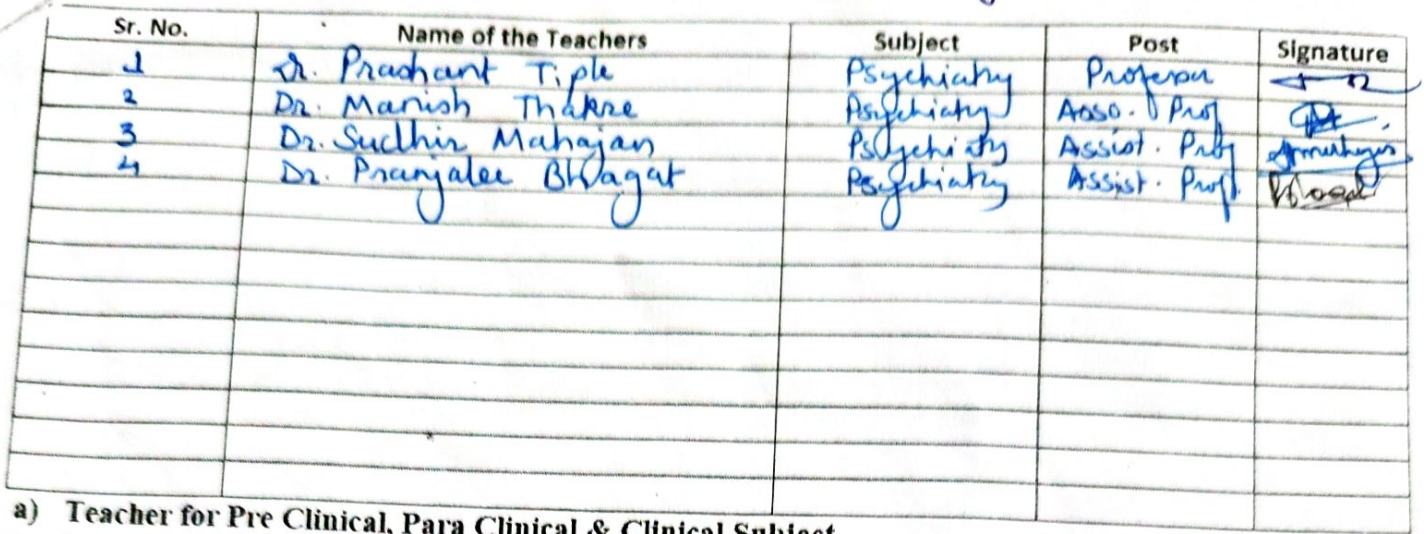 Sr. No. Name of the Teachers Subject Post Signature
1 Dr. Prashant Tiple Psychiatry Professor
2 Dr. Manish Thakre Psychiatry Asso. Prof
3 Dr. Sudhir Mahajan Psychiatry Assist. Prof
4 Dr. Pranjalee Bhagat Psychiatry Assist. Prof.
a) Teacher for Pre Clinical, Para Clinical & Clinical Subject